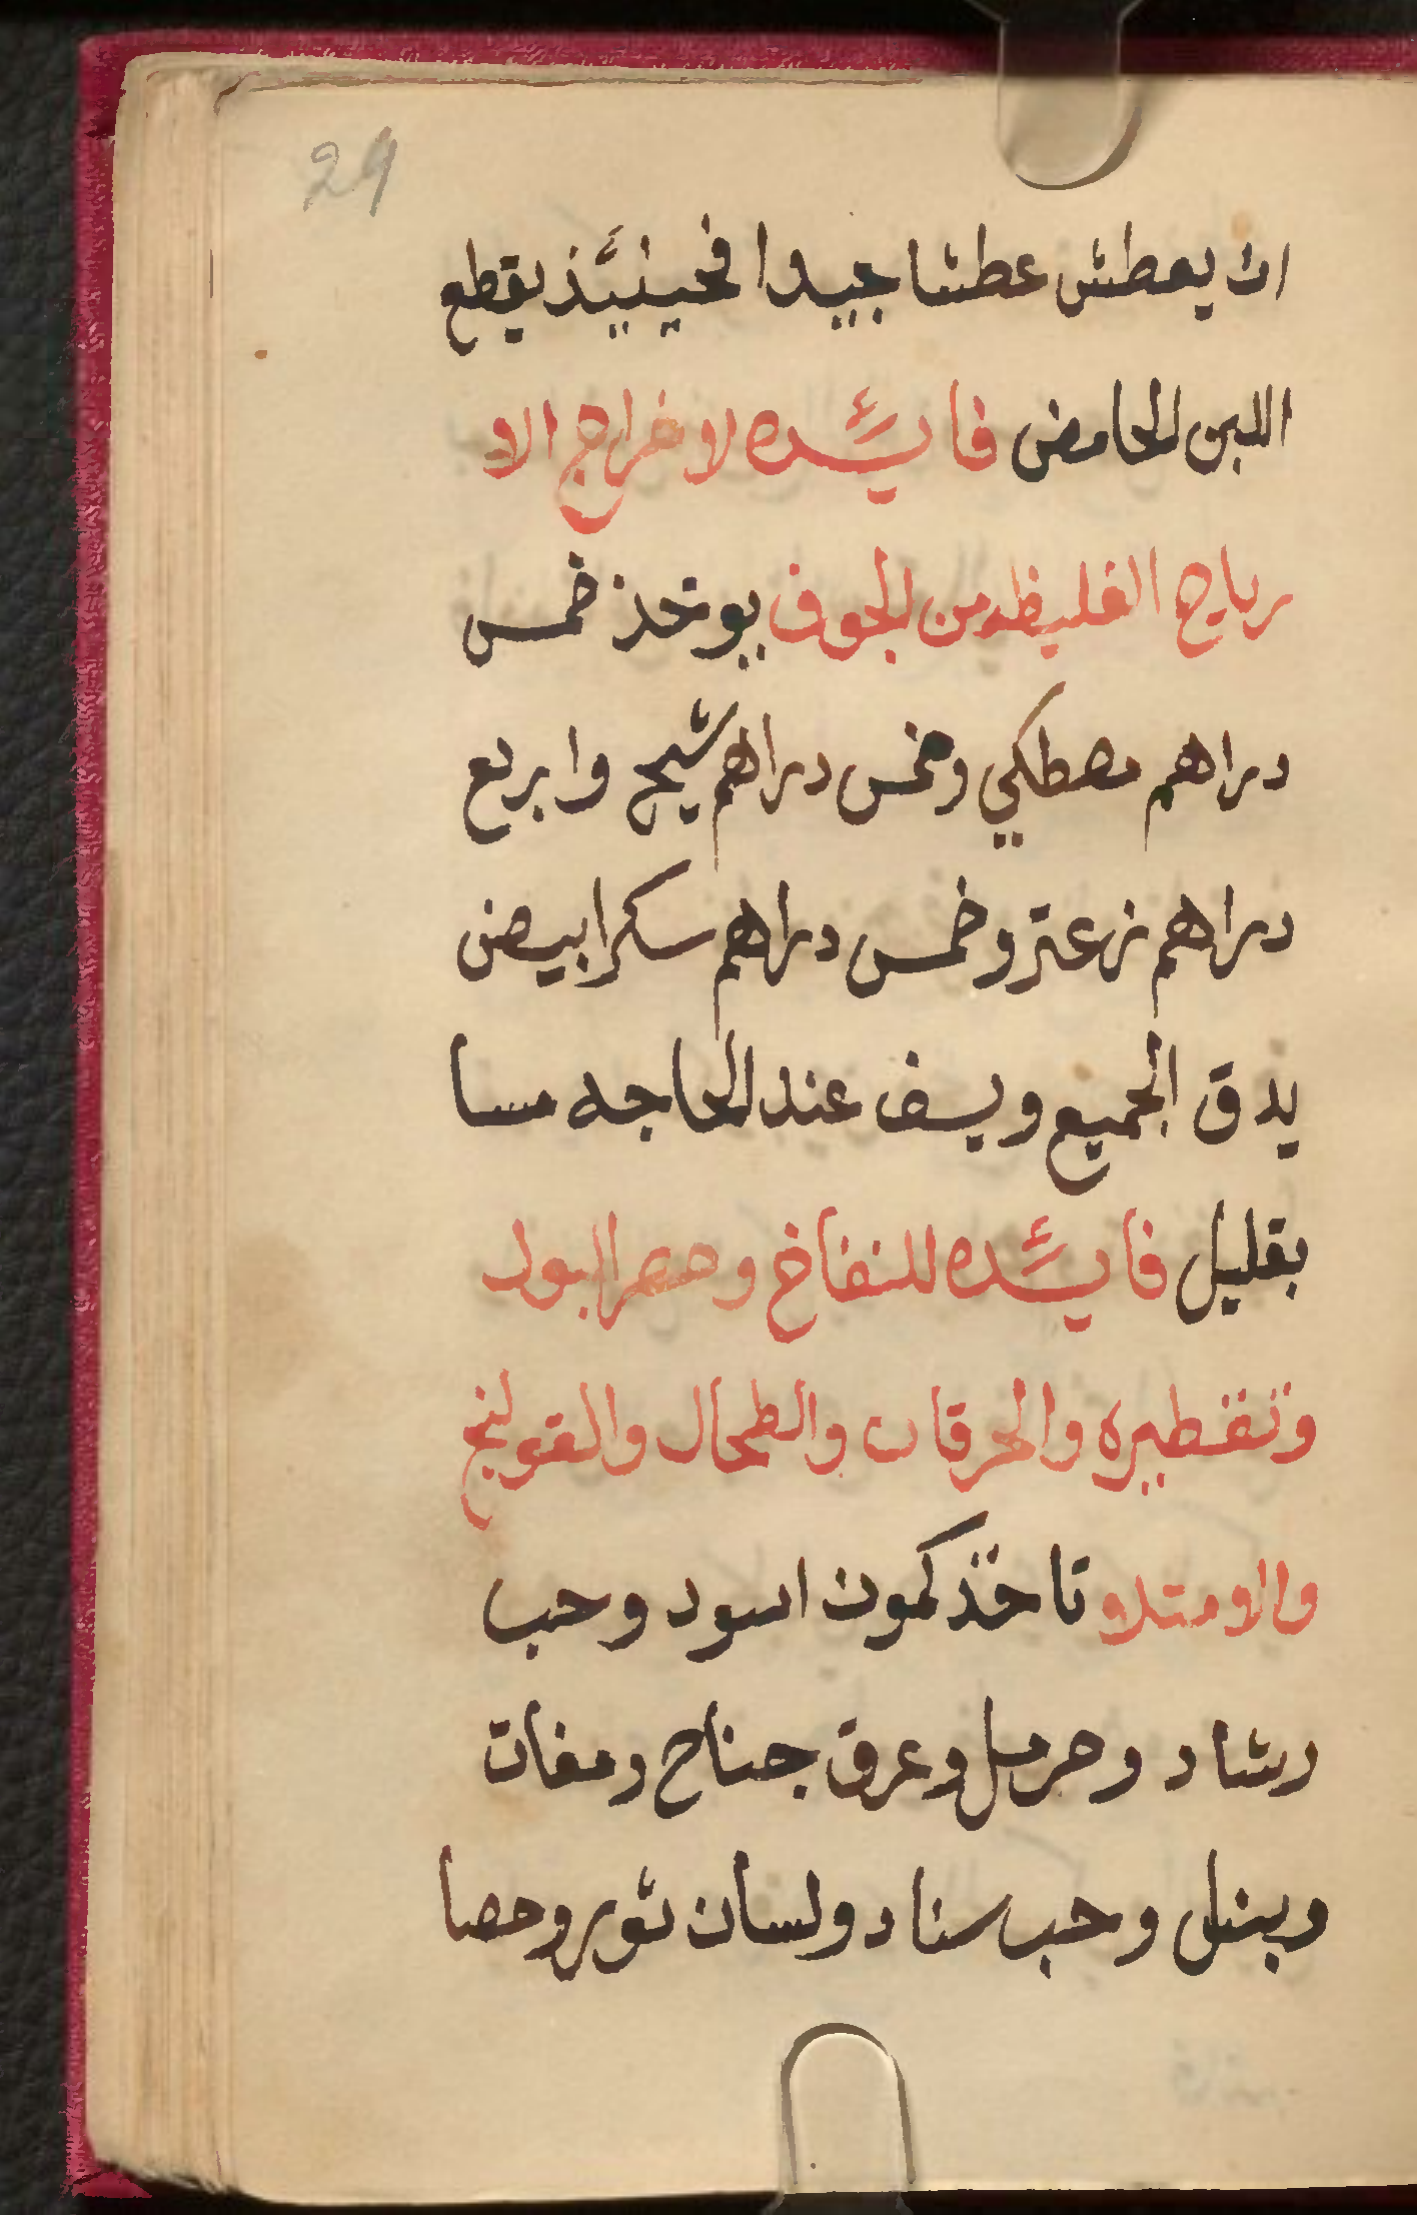 29
ان يعطش عطشا جيدا فحينيئذ يقطع
اللبن الحامض فايئده لاخراج الا
رياح الغليظه من الجوف يوخذ خمس
دراهم مصطكي وخمس دراهم شيح واربع
دراهم زعتر وخمس دراهم سكر ابيض
يدق الجميع ويسف عند الحاجه مسا
بقليل فايئده للنفاخ وحصر البول
وتقطيره والحرقان والطحال والقولنج
والامتلا تاخذ كمون اسود وحب
رشاد وحرمل وعرق جناح ومغات
وبنل وحب سناد ولسان ثور وحصا